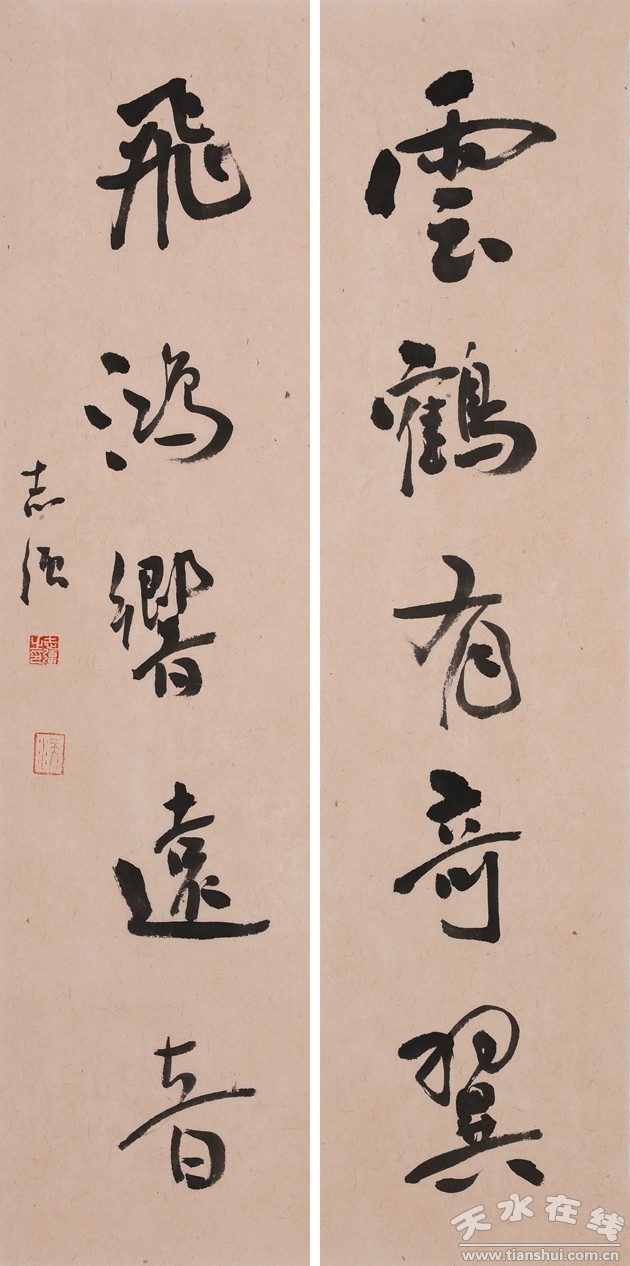 雲鶴有奇翼
飛鴻響遠音
志強
天水在线
www.tianshui.com.cn